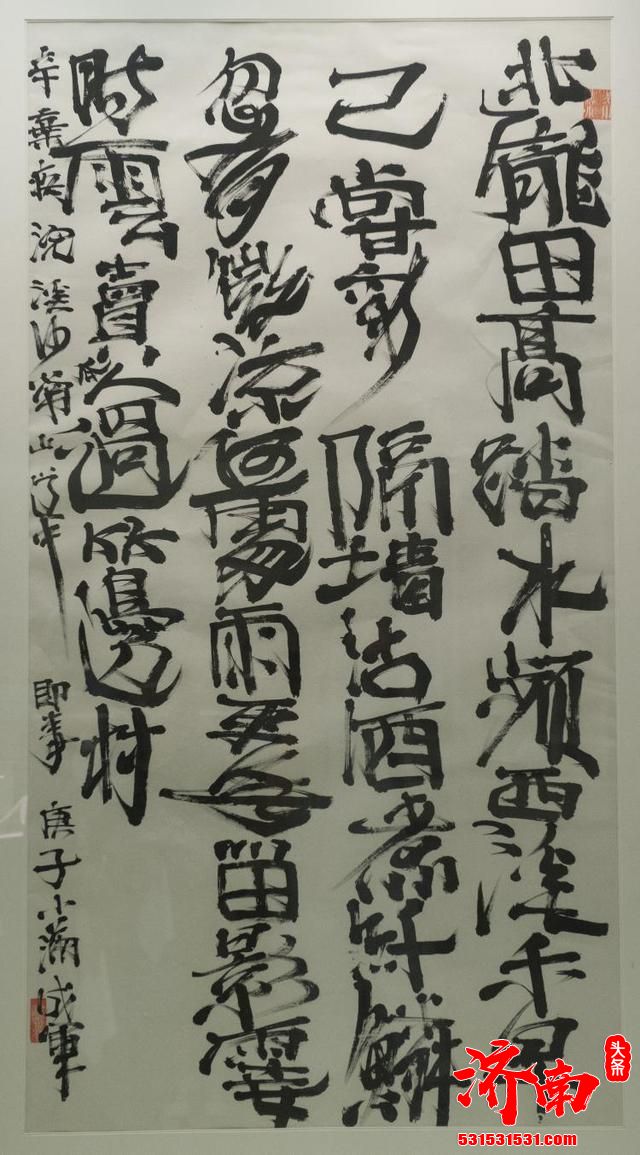 北隴田高踏水頻西溪禾早
已嘗新隔墙沽酒煮纤鱗
忽有微凉何處雨更無留影霎
時雲賣瓜人過竹邊村
辛棄疾浣溪沙常山道中即事 庚子小滿成軍
济南头条
531531531.com